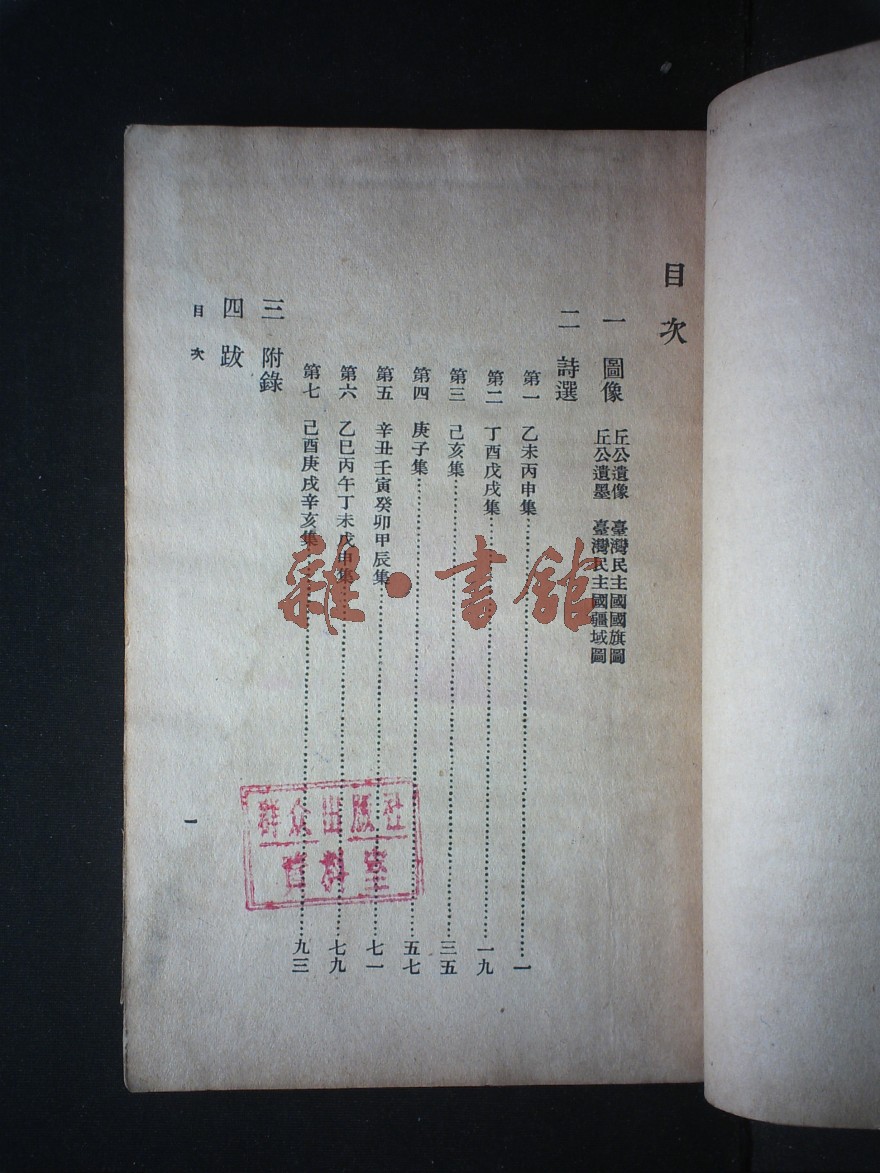 目次
一 圖像 丘公遺像 臺灣民主國國旗圖
丘公遺墨 臺灣民主國疆域圖
二 詩選
第一 乙未丙申集……一
第二 丁酉戊戌集……一九
第三 己亥集……三五
第四 庚子集……五七
第五 辛丑壬寅癸卯甲辰集……七一
第六 乙巳丙午丁未戊申集……七九
第七 己酉庚戌辛亥集……九三
三 附錄
四 跋
目次
一
雜·書館
群众出版社
資料室